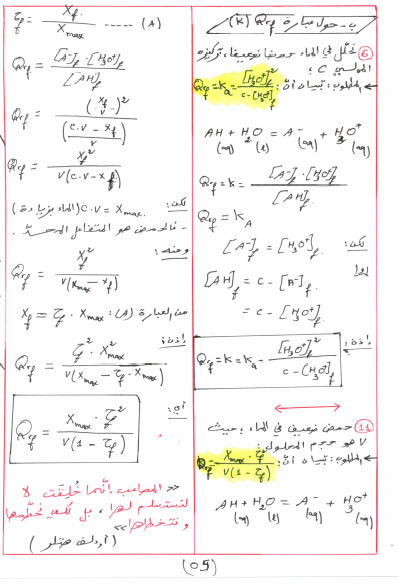 ب - حول عبارة Qrf (K)
⑥ نحلل في الماء حمضا ضعيفا، تركيزه
المولي C :
المطلوب: تبيان أن: Qrf = Ka = [H3O+]f² / C - [H3O+]f
AH(aq) + H2O(l) = A-(aq) + H3O+(aq)
Qrf = K = [A-]f · [H3O+]f / [AH]f
Qrf = KA
لكن: [A-]f = [H3O+]f
لدينا [AH]f = C - [A-]f
= C - [H3O+]f
إذن: Qrf = K = Ka = [H3O+]f² / C - [H3O+]f
⑪ حمض ضعيف في الماء، حيث
V هو حجم المحلول:
المطلوب: تبيان أن: Qrf = Xmax · τf² / V(1 - τf)
AH(aq) + H2O(l) = A-(aq) + H3O+(aq)
τf = Xf / Xmax ---- (A)
Qrf = [A-]f · [H3O+]f / [AH]f
= (Xf / V)² / ((C.V - Xf) / V)
Qrf = Xf² / V(C.V - Xf)
لكن: C.V = Xmax (الماء بزيادة)
- فالحمض هو المتفاعل المحد.
ومنه: Qrf = Xf² / V(Xmax - Xf)
من العبارة (A): Xf = τf · Xmax
إذن: Qrf = τf² · Xmax² / V(Xmax - τf · Xmax)
أي: Qrf = Xmax · τf² / V(1 - τf)
<< المصاعب إنما خُلِقَت لا
لنستسلم لها، بل لكي نحطمها
و نتخطاها >>
(أدولف هتلر)
(05)